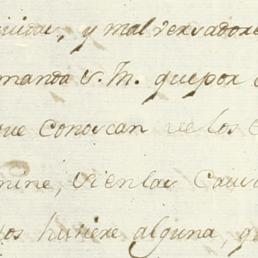 y malversadore
manda V. M. que por
que conoscan de los
mine, si en las Caus
tos huviere alguna, q